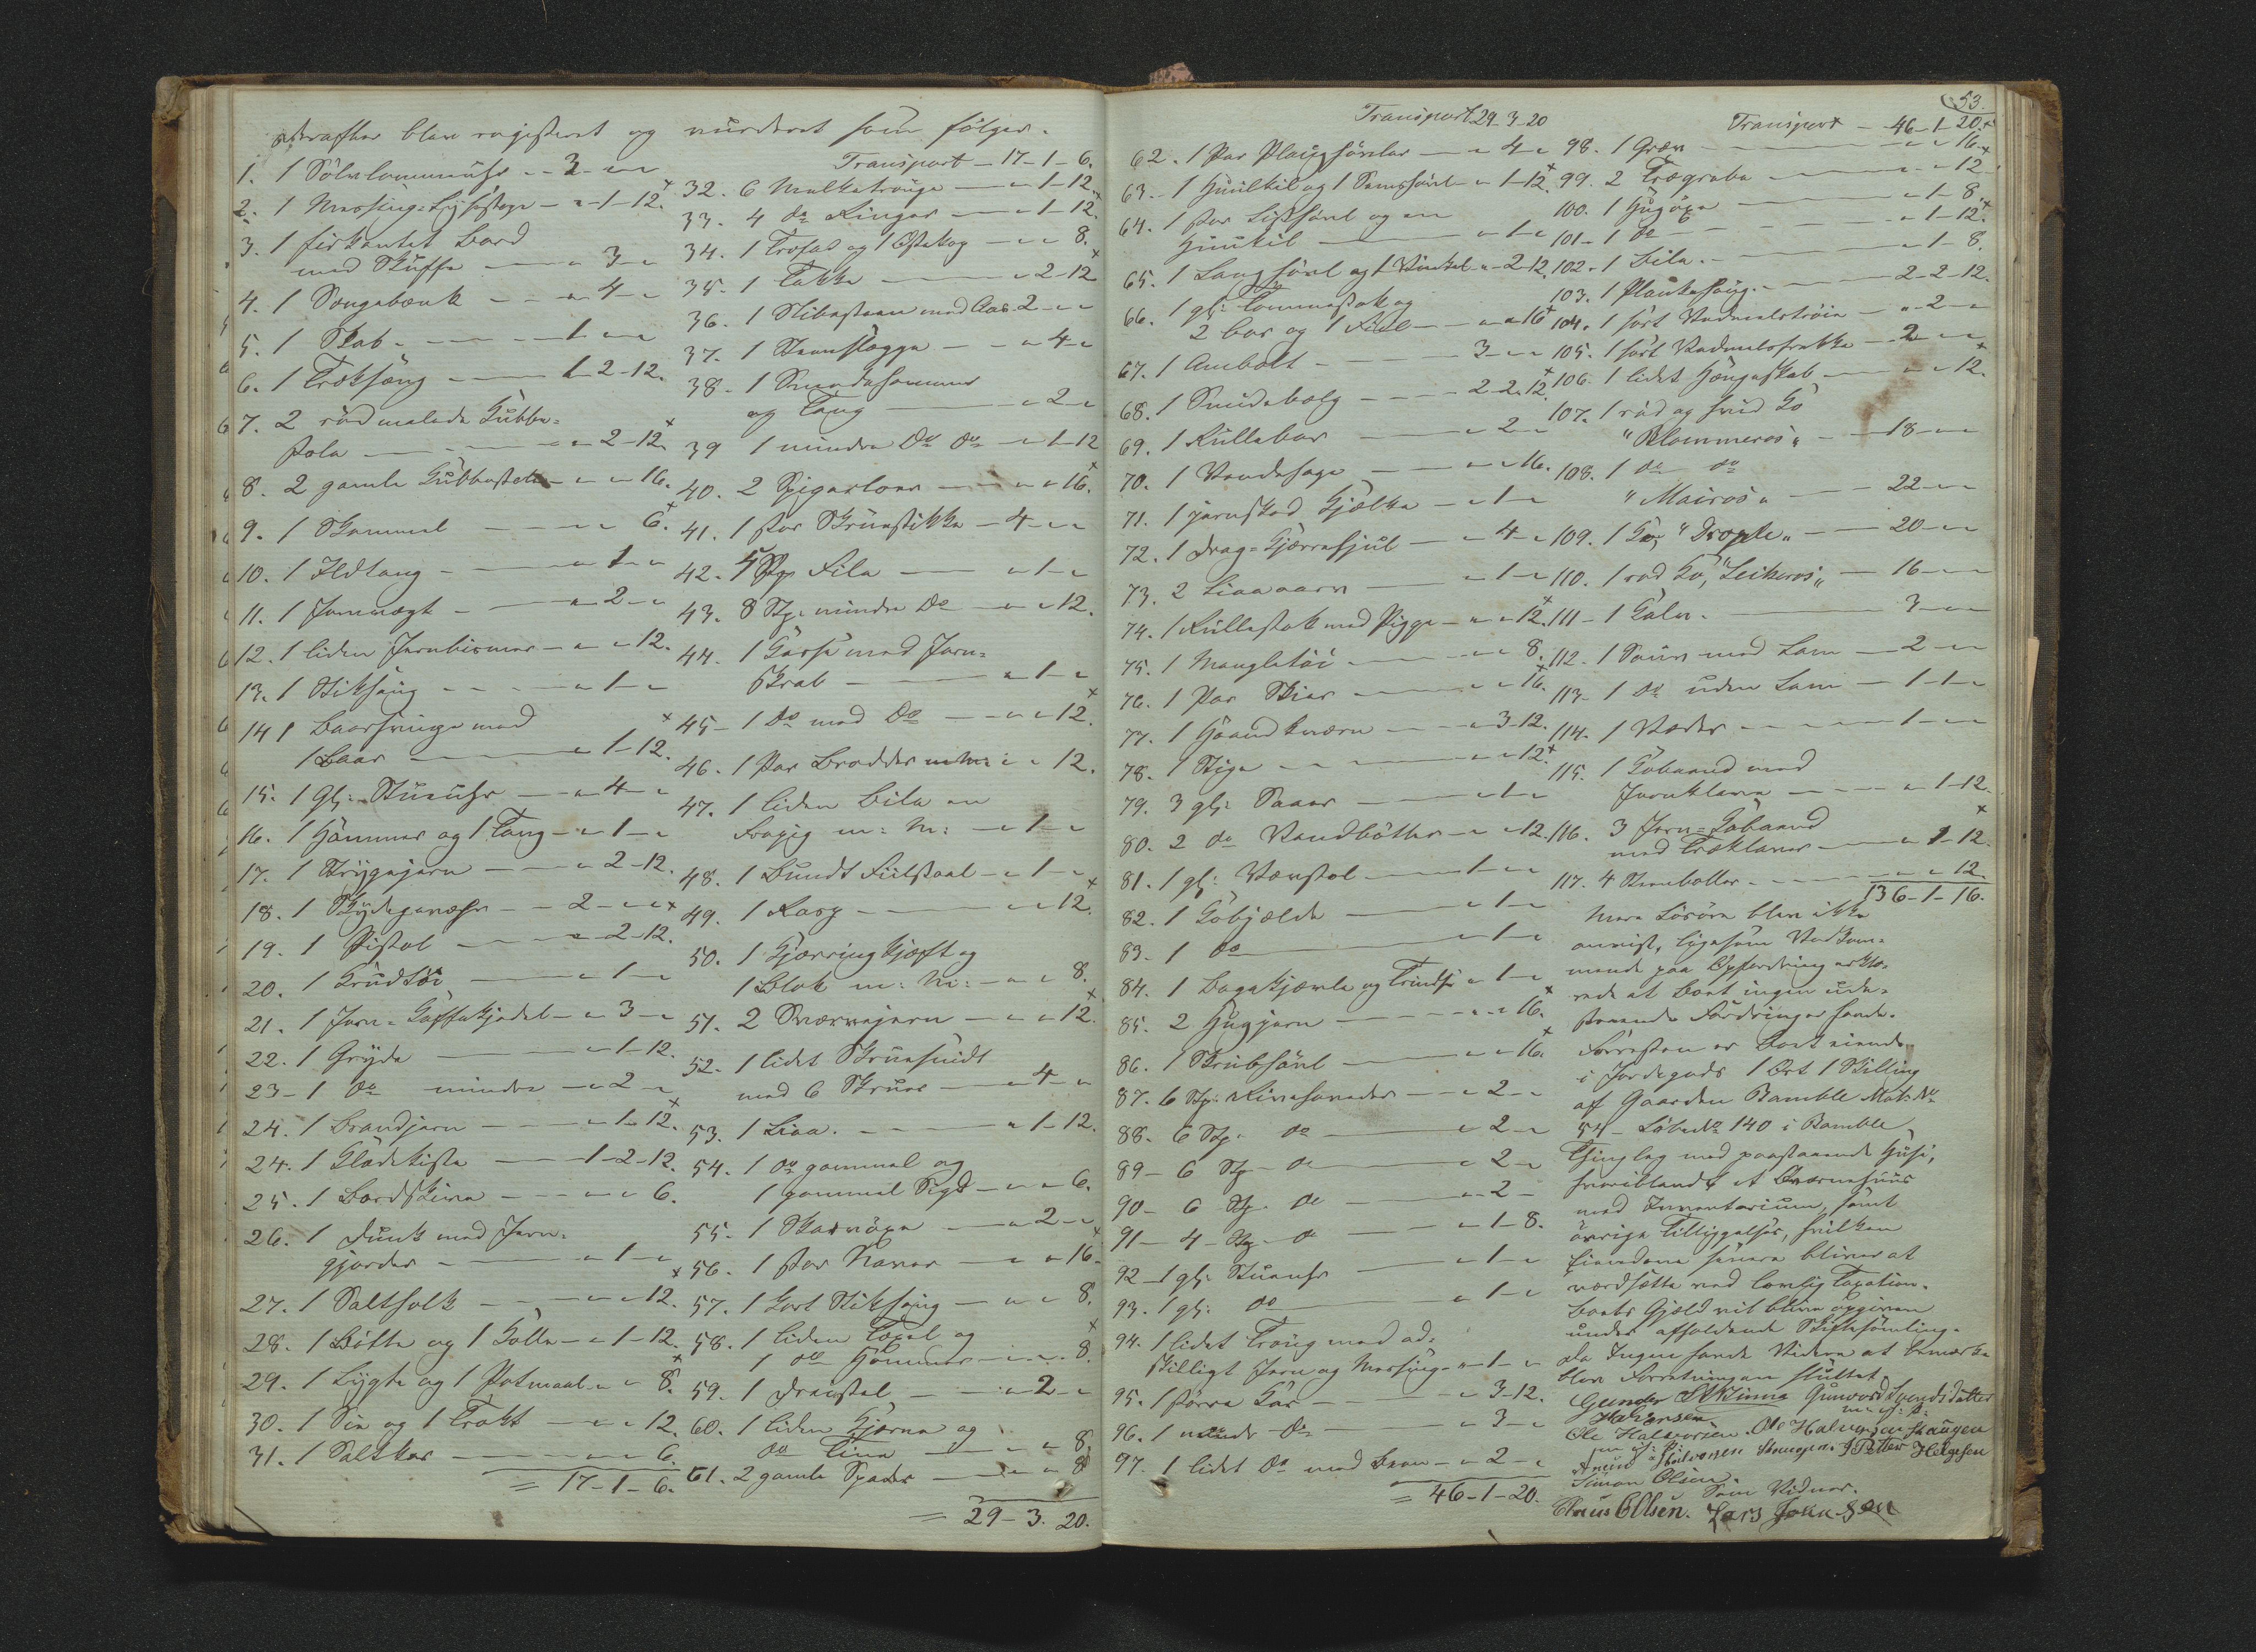 derefter blev registeret og vurderet som følger.
1. 1 Sølvlommeuhr - - 3 - " - "
2. 1 Messing-Lysestage - " - 1 - 12.
3. 1 firkantet Bord
med Skuffe - " 3 - "
4. 1 Sengebænk - " 4 - "
5. 1 Skab - 1 - " - "
6. 1 Træksæng - 1 - 2 - 12.
7. 2 rød malede Gubbe-
stole - " - 2 - 12.
8. 2 gamle Gubbestole - " - " 16.
9. 1 Skammel - " - " 6.
10. 1 Ildtang - " 1 - "
11. 1 Jernvægt - " 2 - "
12. 1 liden Jernbismer - " - " 12.
13. 1 Stiksaug - " 1 - "
14 1 Boorsvinge med
1 Boor - " 1 - 12.
15. 1 gl: Stueuhr - " 4 - "
16. 1 Hammer og 1 Tang - " 1 - "
17. 1 Strygejern - " 2 - 12.
18. 1 Skydegevæhr - - 2 - " - "
19. 1 Pistol - " 2 - 12.
20. 1 Krudtøi - " 1 - "
21. 1 Jern-Kaffekjedel - " 3 - "
22. 1 Gryde - " 1 - 12.
23 - 1 do mindre - " 2 - "
24. 1 Brandjern - " 1 - 12.
24. 1 Klædekiste - 1 - 2 - 12.
25. 1 Bordskive - " - " 6.
26. 1 Dunk med Jern-
gjorder - " 1 - "
27. 1 Saltholk - " - " 12.
28. 1 Bøtte og 1 Kolle - " 1 - 12.
29. 1 Lygte og 1 Potmaal - " - " 8.
30. 1 Sie og 1 Trakt - " - " 12
31. 1 Saltkar - " - " 6.
= 17 - 1 - 6.
Transport - 17 - 1 - 6.
32. 6 Melketrouge - " 1 - 12.
33. 4 do Ringer - " 1 - 12.
34. 1 Trefad og 1 Ostekog - " - " 8.
35. 1 Takke - " 2 - 12
36. 1 Slibesteen med Aas - 2 - " - "
37. 1 Steenslægge - " 4 - "
38. 1 Smedehammer
og Tang - " 2 - "
39 1 mindre Do do - " 1 - 12
40. 2 Spigerloer - " - " 16.
41. 1 stor Skruestikke - 4 - " - "
42. 4 Stp File - " 1 - "
43. 8 Stp: mindre Do - " - " 12.
44. 1 Kasse med Jern-
skrab - " 1 - "
45 - 1 Do med Do - " - " 12.
46. 1 Par Brodder m. m: " - " 12.
47. 1 liden Bile en
m: M: - " 1 - "
48. 1 Bundt Fiilstaal - " 1 - "
49. 1 Rasp - " - " 12.
50. 1 Gjæringkjæft og
1 Blok m: M: - " - " 8.
51. 2 Sværvejern - " - " 12.
52. 1 lidet Skruesnidt
med 6 Skruer - " 4 - "
53. 1 Liaa. - " 1 - 12.
54. 1 do gammel og
1 gammel Sigd - " - " 6.
55. 1 Skarøxe - " 2 - "
56. 1 stor Naver - " - " 16 -
57. 1 Kort Stiksaug - " - " 8.
58. 1 liden Texel og
1 do Hammer - " - " 8.
59. 1 Dreiestol - " 2 - "
60. 1 liden Kjerne og
do Tine - " - " 8.
61. 2 gamle Spader - " - " 8
= 29 - 3. 20.
53.
Transport 29 - 3 - 20
62. 1 Par Pløighøvler - " 4 - "
63 - 1 Huulkil og 1 Simshøvl - " 1 - 12.
64. 1 stor Listhøvl og en
Huulkil - " 1 - "
65. 1 Langhøvl og 1 Vinkel - " - 2 - 12.
66. 1 gl: Tommestok og
2 Bor og 1 Fiil - " - " 16
67. 1 Ambolt - 3 - " - "
68. 1 Smidebelg - 2 - 2 - 12.
69. 1 Rullebor - " 2 - "
70. 1 Vendesage - " - " 16.
71. 1 jernskod Kjælke - " 1 - "
72. 1 Drag-Kjærrehjul - " 4 - "
73. 2 Liaaoorv - " 1 - "
74. 1 Rullestok med Pigge - " - " 12.
75. 1 Mangletøi - " - " 8.
76. 1 Par Skier - " - " 16.
77. 1 Haandkværn - " 3 - 12.
78. 1 Stige - " - " 12.
79. 3 gl: Saaer - " 1 - "
80. 2 do Vandbøtter - " - " 12.
81. 1 gl: Vævstol - " 1 - "
82. 1 Kobjælde - " 1 - "
83. 1 do - " 1 - "
84. 1 Bagekjævle og Trindse " 1 - "
85. 2 Hugjern - " - " 16.
86. 1 Skrubhøvl - " - " 16.
87. 6 Stp: Rivehoveder - " 2 - "
88. 6 Stp. do - " 2 - "
89 - 6 Stp - do - " 2 - "
90 - 6 Stp. do - " 2 -
91 - 4 - Stp - do - " 1 - 8.
92 - 1 gl: Stueuhr - " 1 - "
93. 1 gl: do - " 1 - "
94. 1 lidet Troug med ad-
skilligt Jern og Messing - " 1 - "
95. 1 større Kar - " 3 - 12.
96. 1 mindre Do - " 3 - "
97. 1 lidet Do med Been - " 2 - "
= 46 - 1 - 20.
Transport - 46 - 1 - 20.
98. 1 Græv - " - " 16.
99. 2 Trægrebe - " - " 12
100. 1 Hugøxe - " 1 - 8.
101 - 1 do - " 1 - 12.
102 - 1 Bile. - " 1 - 8.
103. 1 Plankesaug. - 2 - 2 - 12.
104. 1 sort Vadmelstrøie - " - 2 - "
105. 1 sort Vadmelsfrakke - 2 - " - "
106. 1 lidet Hængeskab - " - " 12.
107. 1 rød og hvid Ko
"Blommeros" - 18 - " - "
108. 1 do do
"Mairos" - 22 - " - "
109. 1 Ko, "Drople" - 20 - " - "
110. 1 rød Ko, "Leikeros" - 16 - " - "
111 - 1 Kalv. - 3 - " - "
112. 1 Souv med Lam - 2 - " - "
113 - 1 do uden Lam - 1 - 1 - "
114. 1 Væder - 1 - " - "
115. 1 Kobaand med
Jernklave - " 1 - 12.
116. 3 Jern-Kobaand
med Træklaver - " 1 - 12.
117. 4 Steenbolter - " - " 12.
136 - 1 - 16.
Mere Løsøre blev ikke
anviist, ligesom Vedkom-
mende paa Opfordring erklæ-
rede at Boet ingen ude-
staaende Fordringer havde.
Forresten er Boet eiende
i Jordegods 1 Ort 1 Skilling
af Gaarden Bamble Mat: No
54 - Løbeno 140 i Bamble
Thinglag med paastaaende Huse,
hvoriblandt et Qværnehuus
med Inventarium, samt
øvrige Tilliggelser, hvilken
Eiendom senere bliver at
værdsætte ved lovlig Taxation.
Boets Gjæld vil blive opgiven
under afholdende Skiftesamling.
Da Ingen havde Videre at bemærke
blev Forretningen sluttet
Gunder Halvorsen Gunvord Svendsdatter
m. f. P.
Ole Halvorsen. Ole Halvorsen Haugen
m. f. P.
Halvorsen Haugen. J Petter Helgesen
Simon Olsen.
Som Vidner.
Claus Olsen. Lars Johnsen